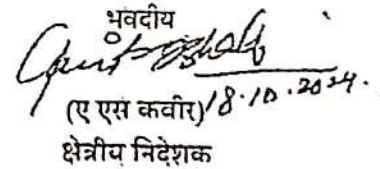 भवदीय
(ए एस कवीर) 18.10.2024.
क्षेत्रीय निदेशक